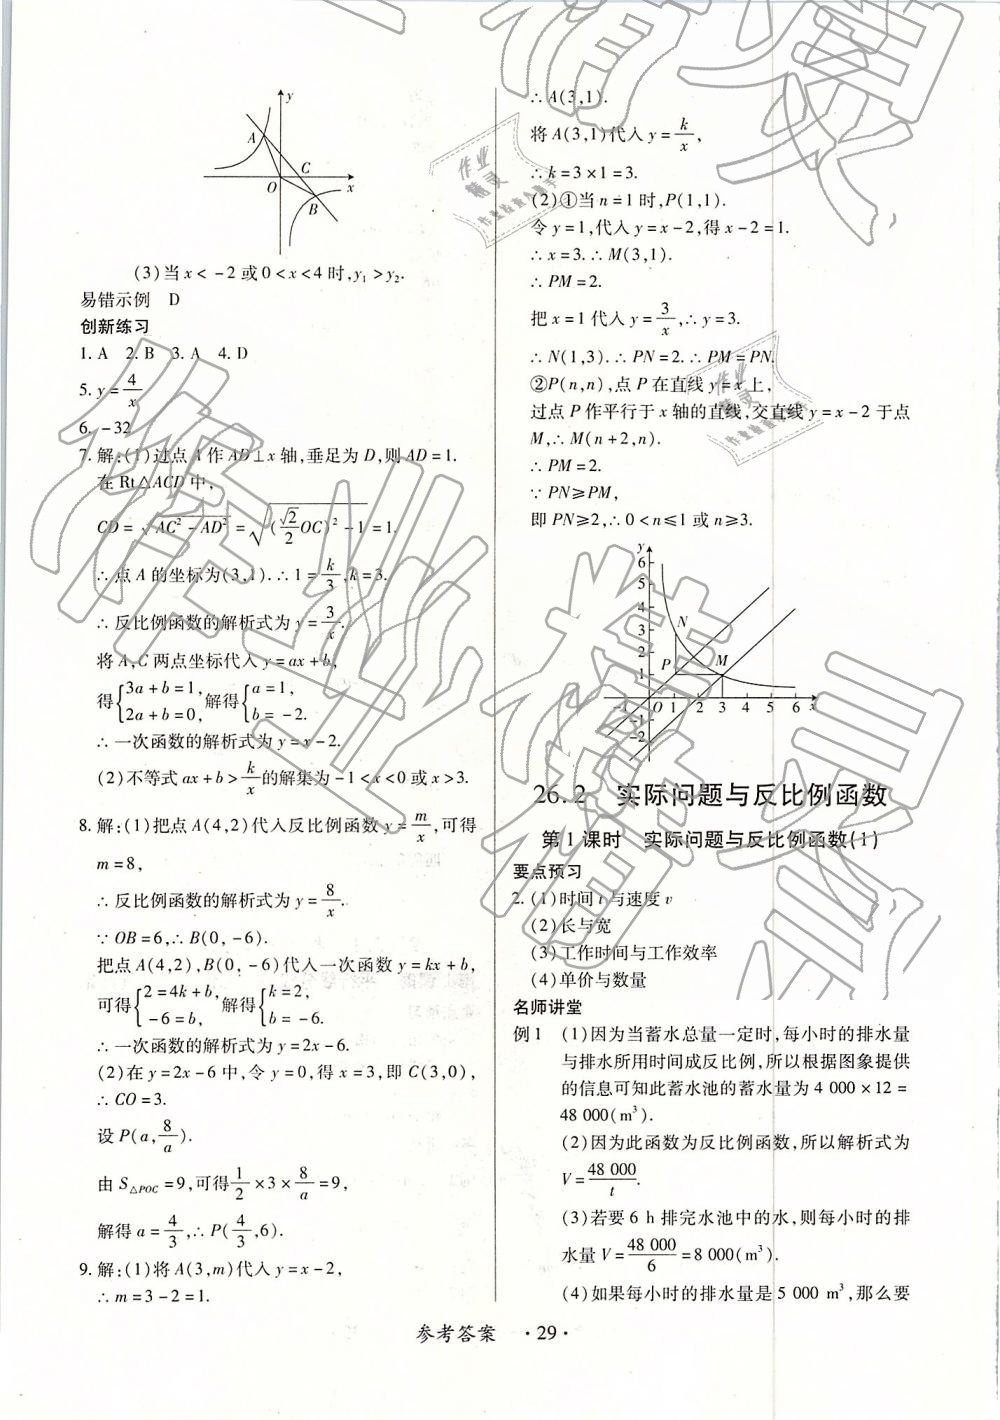 y
A
C
O
x
B
(3)当x<-2或0<x<4时,y₁>y₂.
易错示例 D
创新练习
1. A 2. B 3. A 4. D
5. y=4/x
6. -32
7. 解:(1)过点A作AD⊥x轴,垂足为D,则AD=1.
在Rt△ACD中,
CD=√(AC²-AD²)=√((√2/2 OC)²-1)=1.
∴点A的坐标为(3,1).∴1=k/3,k=3.
∴反比例函数的解析式为y=3/x.
将A,C两点坐标代入y=ax+b,
得{3a+b=1, 2a+b=0,解得{a=1, b=-2.
∴一次函数的解析式为y=x-2.
(2)不等式ax+b>k/x的解集为-1<x<0或x>3.
8. 解:(1)把点A(4,2)代入反比例函数y=m/x,可得
m=8,
∴反比例函数的解析式为y=8/x.
∵OB=6,∴B(0,-6).
把点A(4,2),B(0,-6)代入一次函数y=kx+b,
可得{2=4k+b, -6=b,解得{k=2, b=-6.
∴一次函数的解析式为y=2x-6.
(2)在y=2x-6中,令y=0,得x=3,即C(3,0),
∴CO=3.
设P(a,8/a).
由S△POC=9,可得1/2×3×8/a=9,
解得a=4/3,∴P(4/3,6).
9. 解:(1)将A(3,m)代入y=x-2,
∴m=3-2=1.
∴A(3,1).
将A(3,1)代入y=k/x,
∴k=3×1=3.
(2)①当n=1时,P(1,1).
令y=1,代入y=x-2,得x-2=1.
∴x=3.∴M(3,1).
∴PM=2.
把x=1代入y=3/x,∴y=3.
∴N(1,3).∴PN=2.∴PM=PN.
②P(n,n),点P在直线y=x上,
过点P作平行于x轴的直线,交直线y=x-2于点
M,∴M(n+2,n).
∴PM=2.
∵PN≥PM,
即PN≥2,∴0<n≤1或n≥3.
y
6
5
4
3 N
2
1 P M
-1 O 1 2 3 4 5 6 x
-1
-2
26.2 实际问题与反比例函数
第1课时 实际问题与反比例函数(1)
要点预习
2. (1)时间t与速度v
(2)长与宽
(3)工作时间与工作效率
(4)单价与数量
名师讲堂
例1 (1)因为当蓄水总量一定时,每小时的排水量
与排水所用时间成反比例,所以根据图象提供
的信息可知此蓄水池的蓄水量为4 000×12=
48 000(m³).
(2)因为此函数为反比例函数,所以解析式为
V=48 000/t.
(3)若要6 h排完水池中的水,则每小时的排
水量V=48 000/6=8 000(m³).
(4)如果每小时的排水量是5 000 m³,那么要
参考答案 ·29·
作业精灵
作业精灵
作业精灵